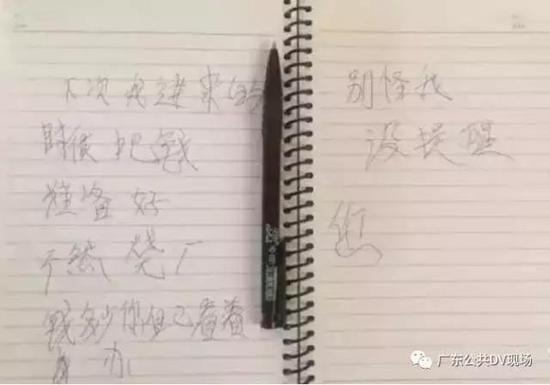 下次我进来的
时候把钱
准备好
不然烧厂
钱多少你自己看着
办
别怪我
没提醒
您
广东公共DV现场